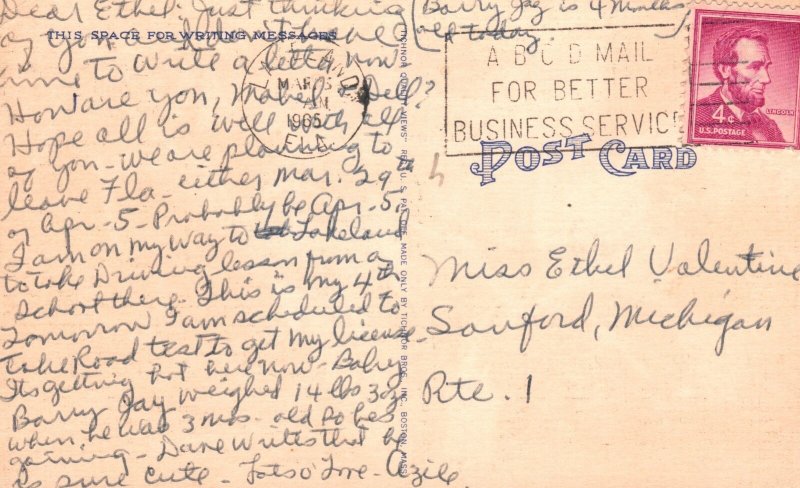 Dear Ethel- Just thinking
of you
time to write a letter now
How are you, Mabel & Dell?
Hope all is well with all
of you- we are planning to
leave Fla- either Mar. 29th
or Apr-5- Probably be Apr-5.
I am on my way to Lakeland
to take Driving lesson from a
school there- This is my 4th
Tomorrow I am scheduled to
take Road test to get my license-
Its getting hot here now- Baby
Barry Jay weighed 14 lbs 3 oz
when he was 3 mos- old so he's
gaining- Dave writes that he
is sure cute- Lots o' Love- Azile
(Barry Jay is 4 months
old today.
THIS SPACE FOR WRITING MESSAGES
LAKELAND
MAR
1965
FLA.
A B C D MAIL
FOR BETTER
BUSINESS SERVICE
4¢
U.S. POSTAGE
LINCOLN
POST CARD
Miss Ethel Valentine
Sanford, Michigan
Rte. 1
MADE ONLY BY TICHNOR BROS., INC., BOSTON, MASS.